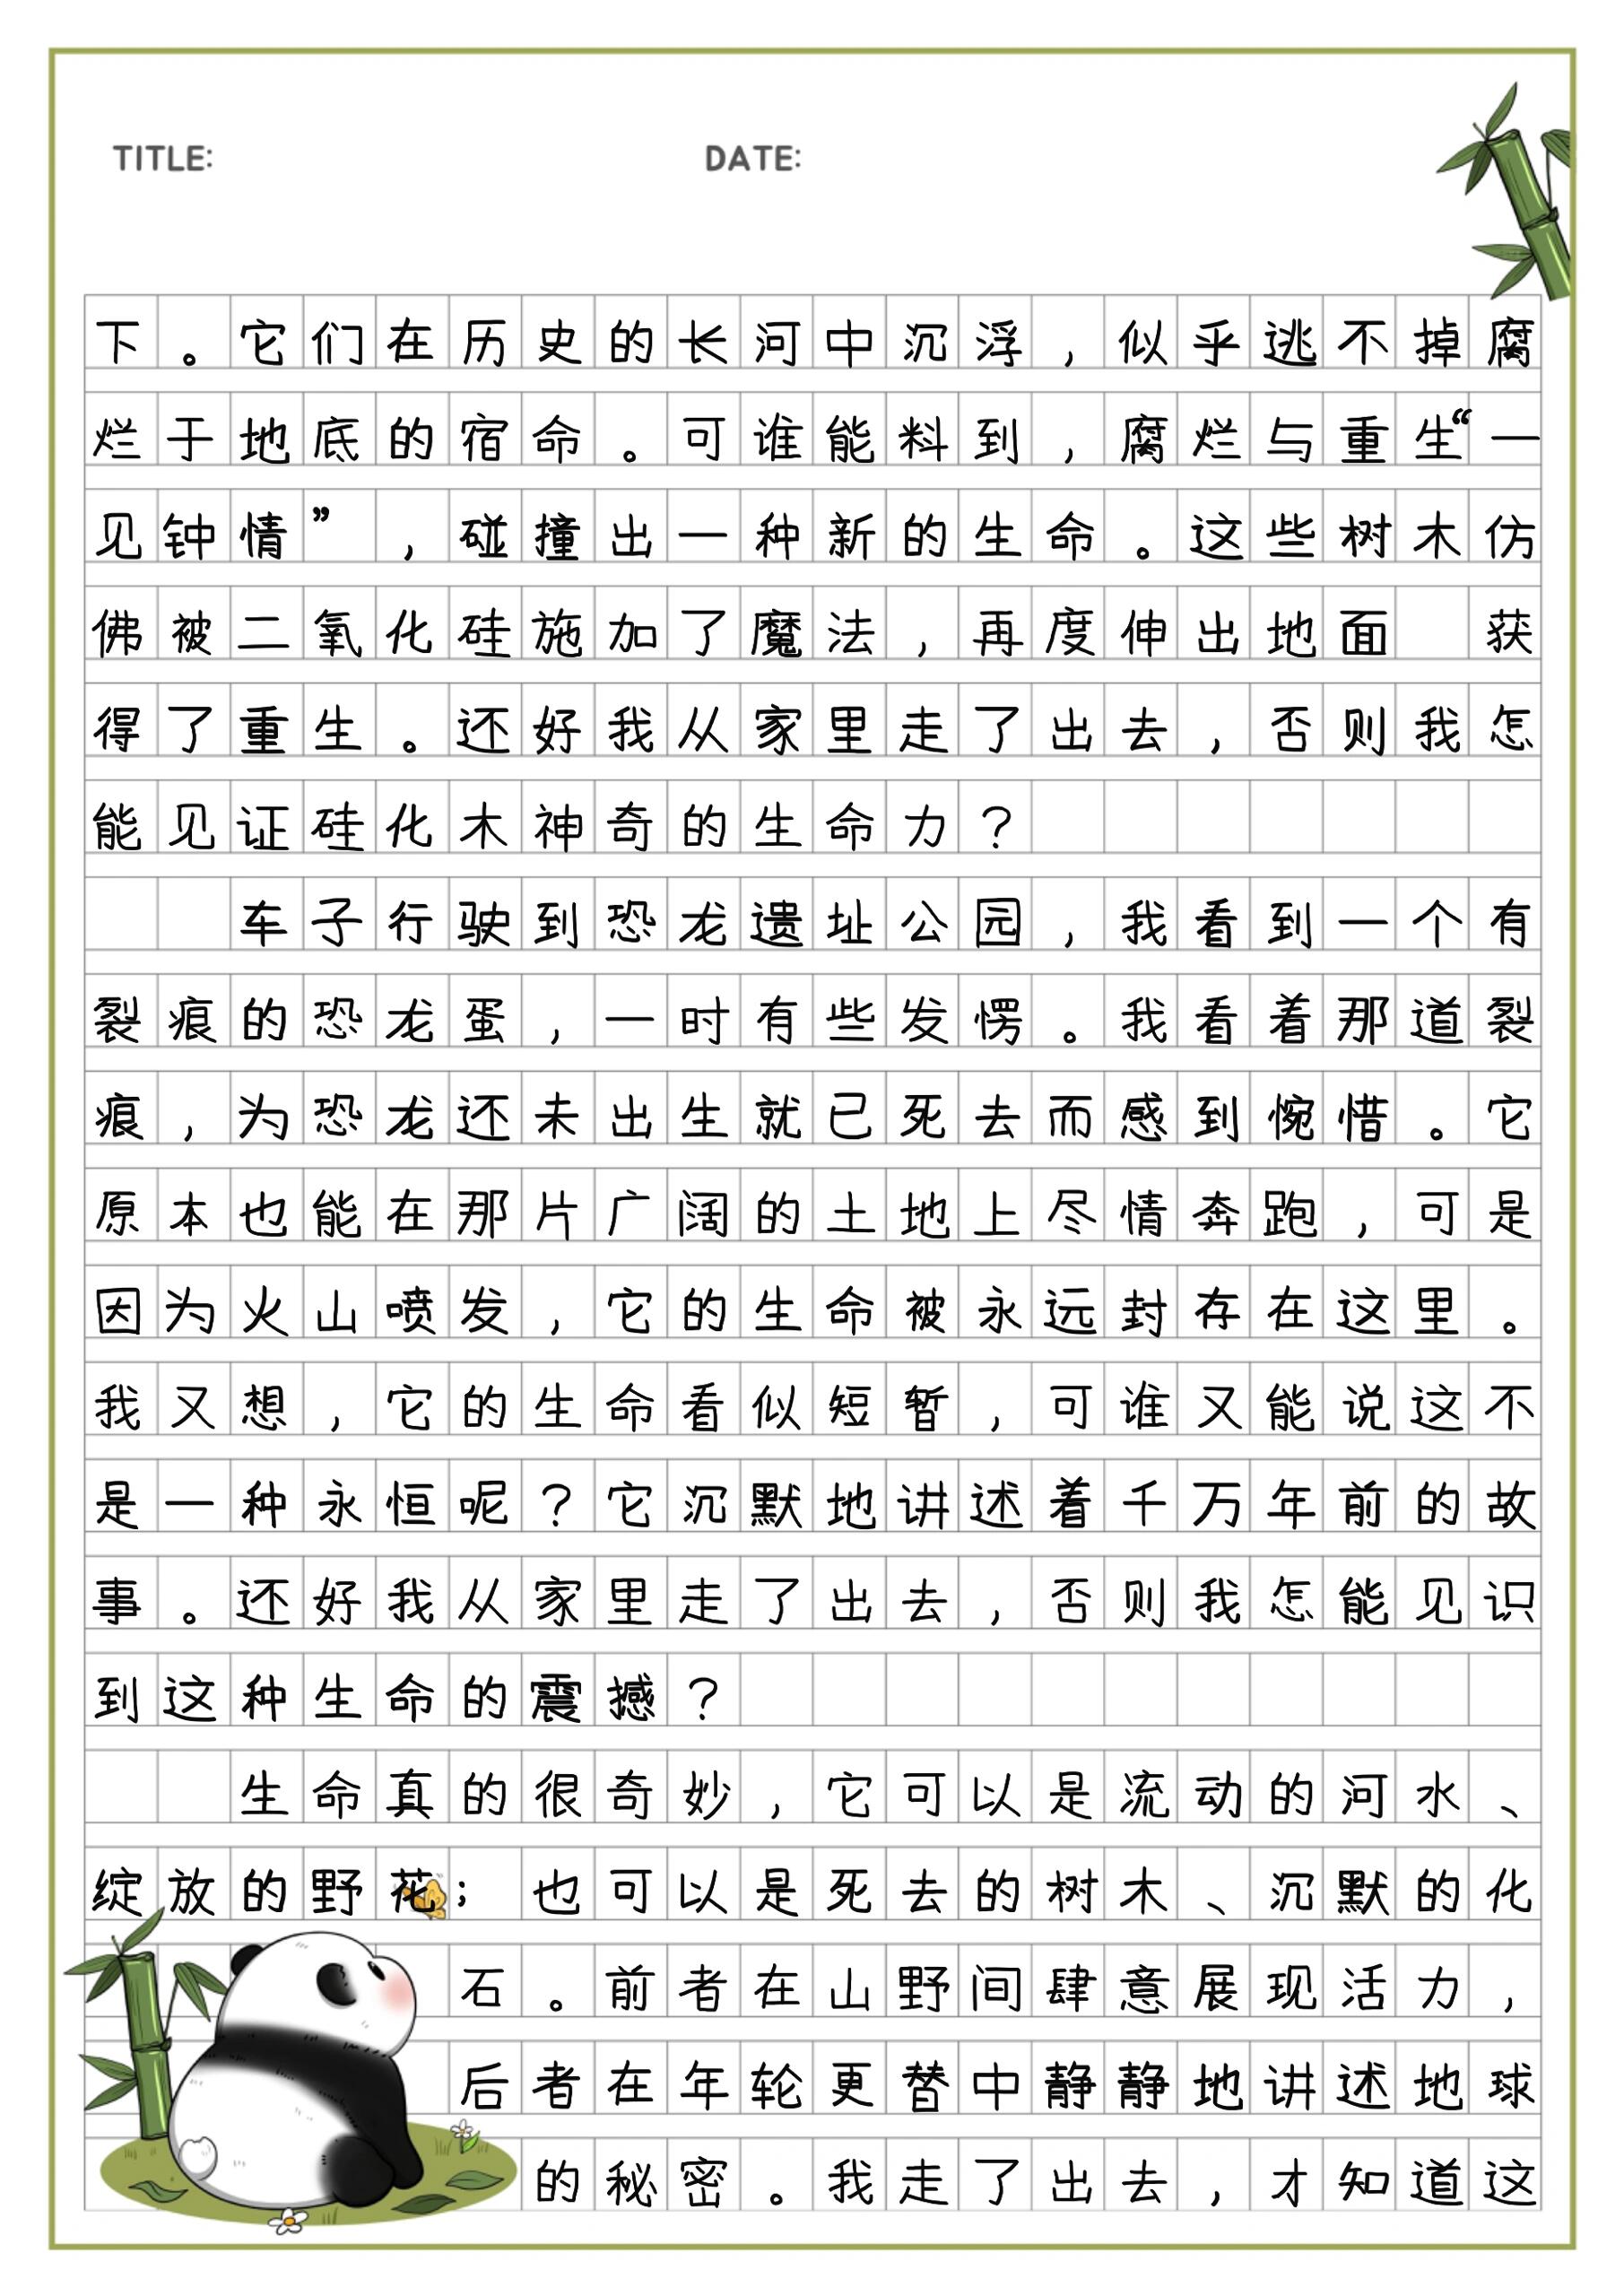 TITLE: DATE:
下。它们在历史的长河中沉浮，似乎逃不掉腐
烂于地底的宿命。可谁能料到，腐烂与重生“一
见钟情”，碰撞出一种新的生命。这些树木仿
佛被二氧化硅施加了魔法，再度伸出地面 获
得了重生。还好我从家里走了出去，否则我怎
能见证硅化木神奇的生命力？
车子行驶到恐龙遗址公园，我看到一个有
裂痕的恐龙蛋，一时有些发愣。我看着那道裂
痕，为恐龙还未出生就已死去而感到惋惜。它
原本也能在那片广阔的土地上尽情奔跑，可是
因为火山喷发，它的生命被永远封存在这里。
我又想，它的生命看似短暂，可谁又能说这不
是一种永恒呢？它沉默地讲述着千万年前的故
事。还好我从家里走了出去，否则我怎能见识
到这种生命的震撼？
生命真的很奇妙，它可以是流动的河水、
绽放的野花；也可以是死去的树木、沉默的化
石。前者在山野间肆意展现活力，
后者在年轮更替中静静地讲述地球
的秘密。我走了出去，才知道这